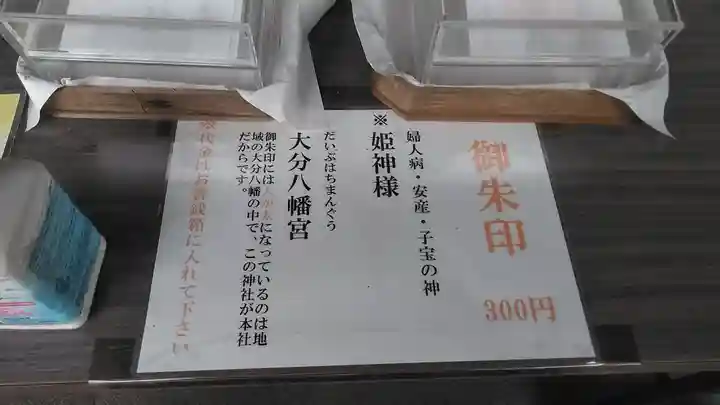 御朱印
300円
婦人病・安産・子宝の神
※姫神様
だいぶはちまんぐう
大分八幡宮
御朱印には になっているのは地
域の大分八幡の中で、この神社が本社
だからです。
※代金はお賽銭箱に入れて下さい